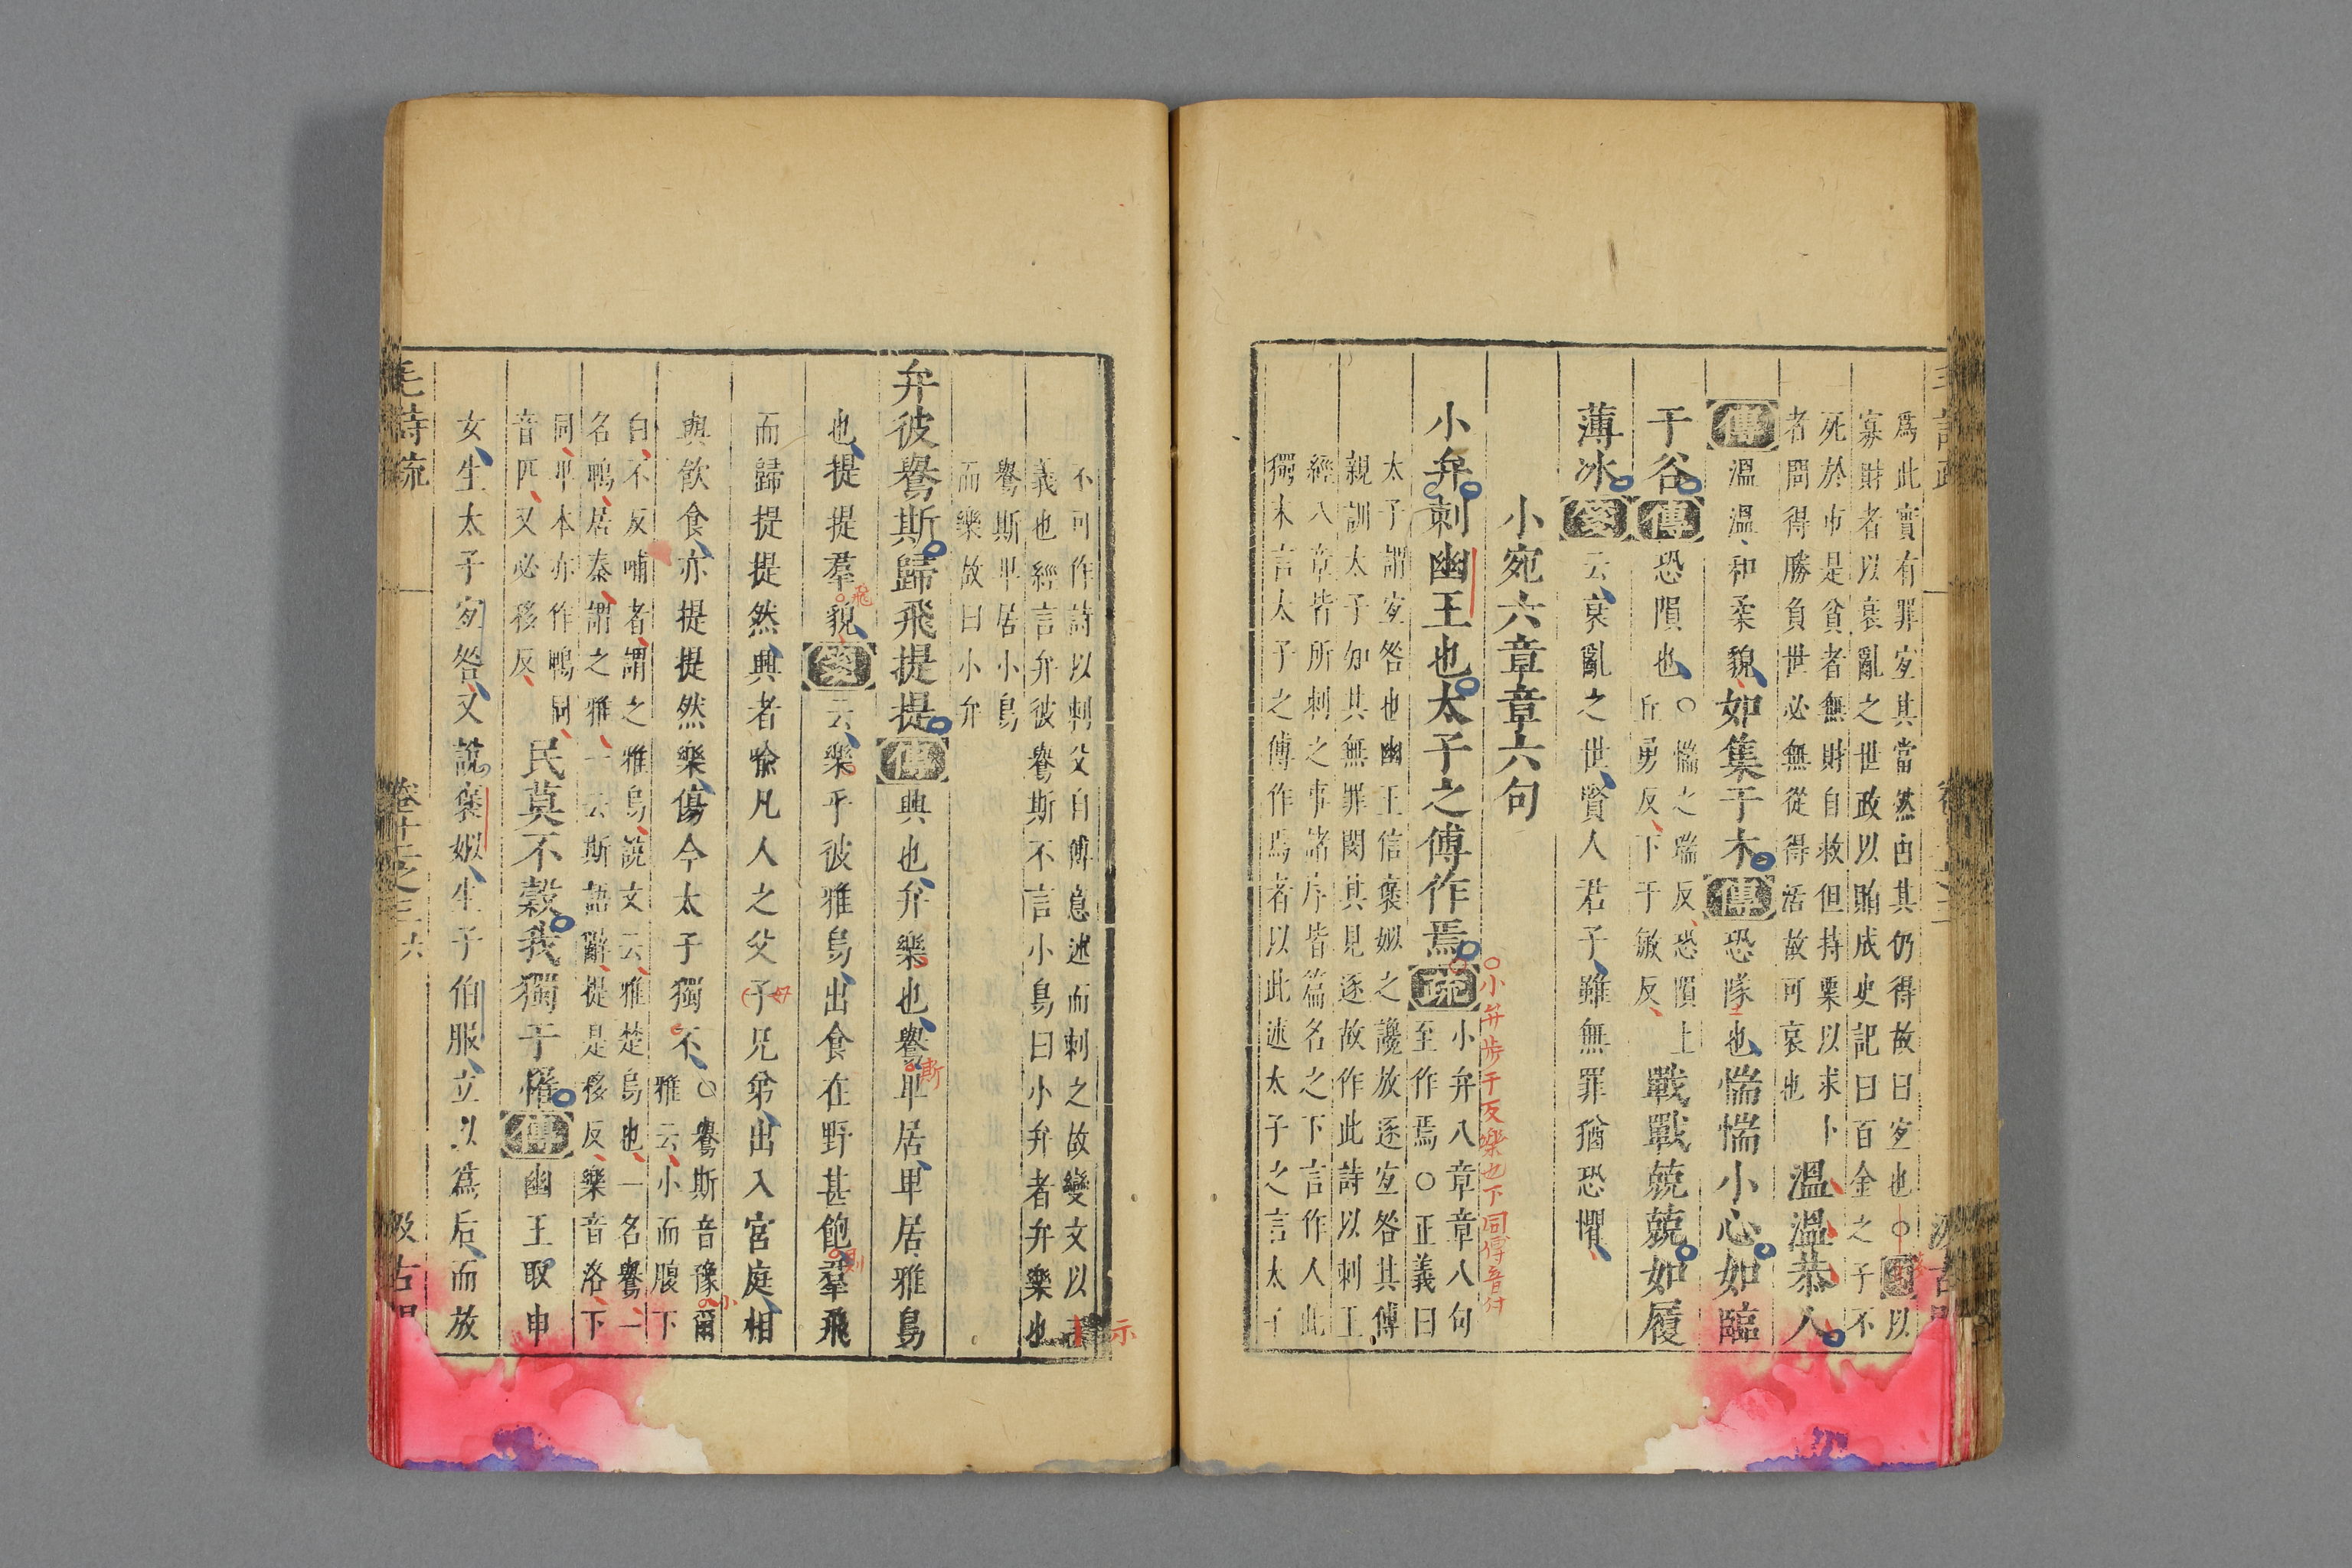 爲此實有罪宐其當然由其仍得故曰宐也○
寡財者以衰亂之世政以賄成史記曰百金之子不
死於市是貧者無財自救但持粟以求卜
者問得勝負世必無從得活故可哀也
溫溫恭人
傳溫溫和柔貌如集于木傳恐隊也惴惴小心如臨
于谷傳恐隕也
○惴之瑞反恐隕上
丘勇反下于敏反
戰戰兢兢如履
薄冰箋云衰亂之世賢人君子雖無罪猶恐懼
小宛六章章六句
小弁刺幽王也太子之傅作焉疏
小弁八章章八句
至作焉○正義曰
○小弁步干反樂也下同傅音付
太子謂宐咎也幽王信褒姒之讒放逐宐咎其傅
親訓太子知其無罪閔其見逐故作此詩以刺王
經八章皆所刺之事諸序皆篇名之下言作人此
獨末言太子之傅作焉者以此述太子之言太子
不可作詩以刺父自傅意述而刺之故變文以
示
義也經言弁彼鸒斯不言小鳥曰小弁者弁樂也
鸒斯卑居小鳥
而樂故曰小弁
弁彼鸒斯歸飛提提傳興也弁樂也鸒卑居卑居雅烏
斯
也提提羣貌箋云樂乎彼雅烏出食在野甚飽羣飛
飛
則
而歸提提然興者喩凡人之父子兄弟出入宮庭相
與飲食亦提提然樂傷今太子獨不
○鸒斯音豫爾
雅云小而腹下
小
白不反哺者謂之雅烏說文云雅楚烏也一名鸒一
名鵯居秦謂之雅一云斯語辭提是移反樂音洛下
同卑本亦作鵯同
音匹又必移反
民莫不穀我獨于罹傳幽王取申
女生太子宐咎又說褒姒生子伯服立以爲后而放
毛詩疏
卷十二之三
六
汲古